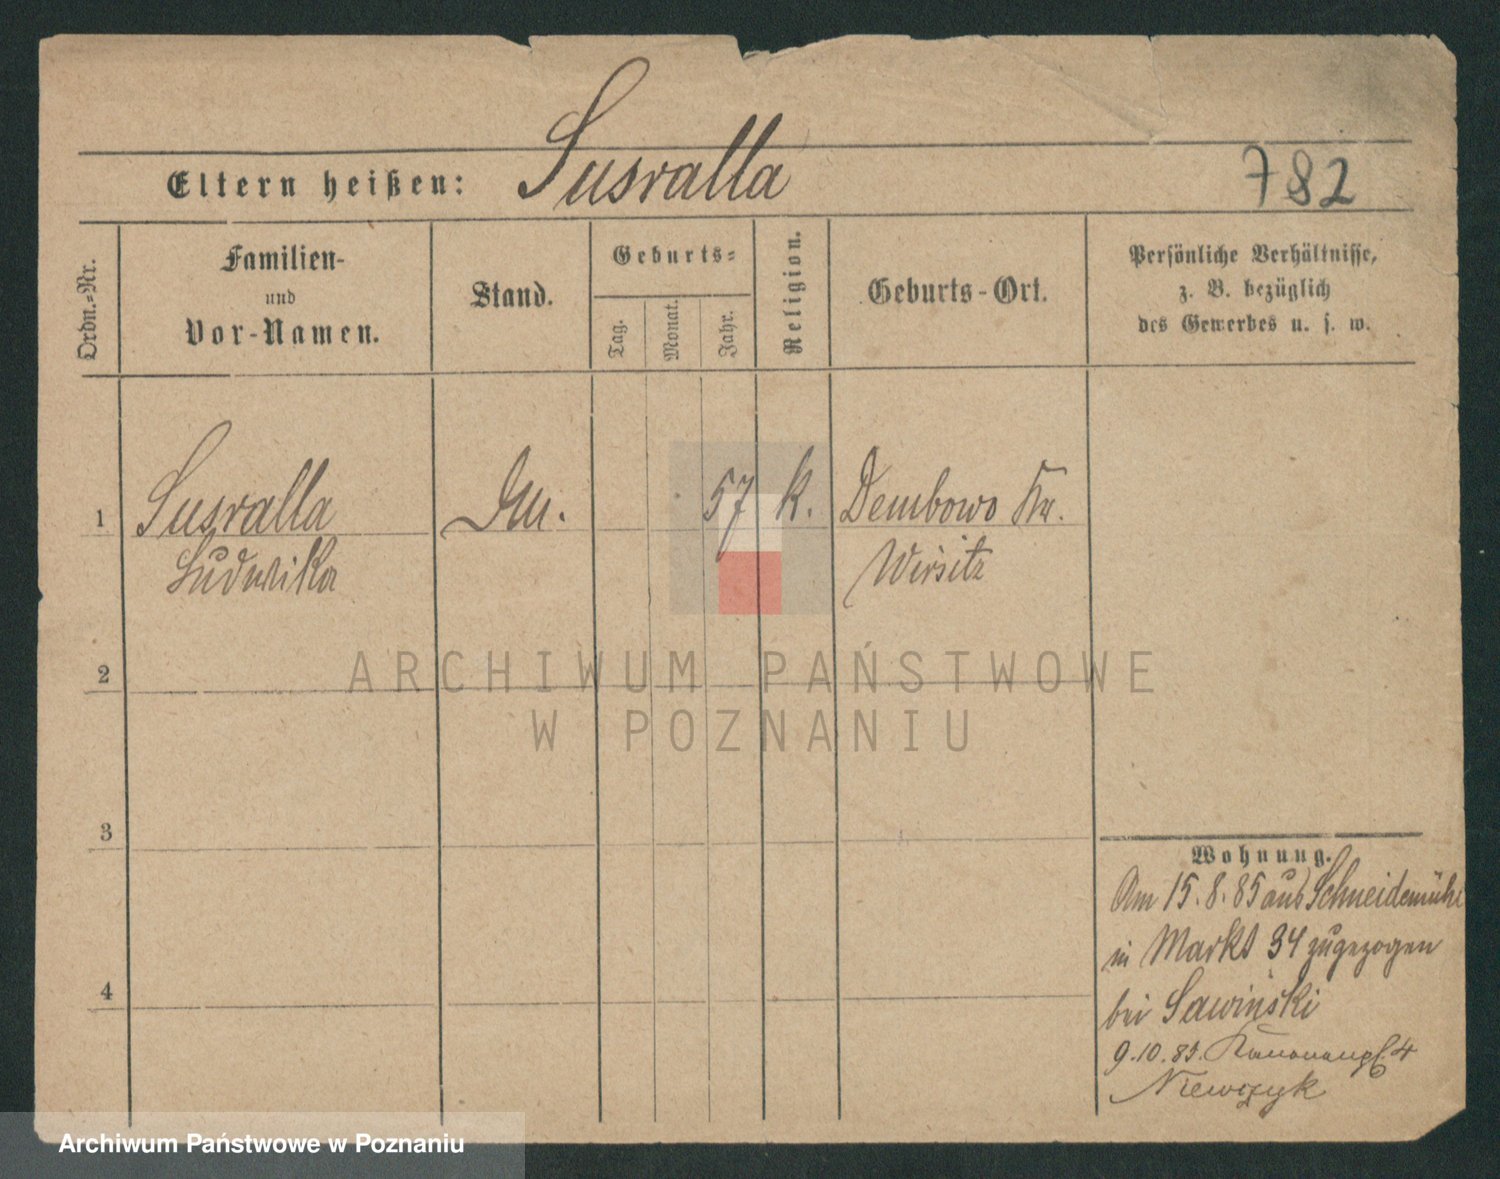 Eltern heißen: Susralla
782
Ordn.=Nr.
Familien-
und
Vor-Namen.
Stand.
Geburts=
Tag.
Monat.
Jahr.
Religion.
Geburts-Ort.
Persönliche Verhältnisse,
z. B. bezüglich
des Gewerbes u. s. w.
1 Susralla 57 k. Dembowo Kr.
Ludwika Wirsitz
2
ARCHIWUM PAŃSTWOWE
W POZNANIU
3
Wohnung.
Am 15.8.85 aus Schneidemühl
in Markt 34 zugezogen
bei Sawinski
4
9.10.85. Kanonenpl. 4
Niewczyk
Archiwum Państwowe w Poznaniu